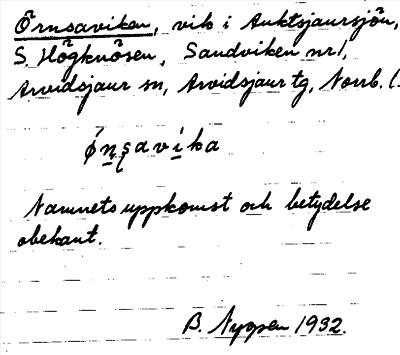 Örnsaviken, vik i Auktsjaursjön,
S. Högknösen, Sandviken nr 1,
Arvidsjaur sn, Arvidsjaur tg, Norrb. l.
ǿn̥ṣavi̱ka
Namnets uppkomst och betydelse
obekant.
B. Nygren 1932.